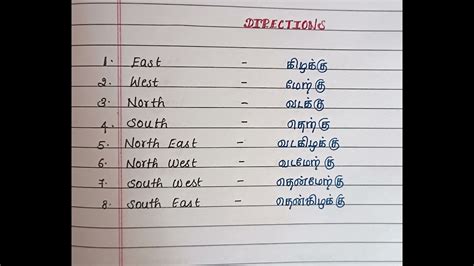 DIRECTIONS
1. East - கிழக்கு
2. West - மேற்கு
3. North - வடக்கு
4. South - தெற்கு
5. North East - வடகிழக்கு
6. North West - வடமேற்கு
7. South West - தென்மேற்கு
8. South East - தென்கிழக்கு